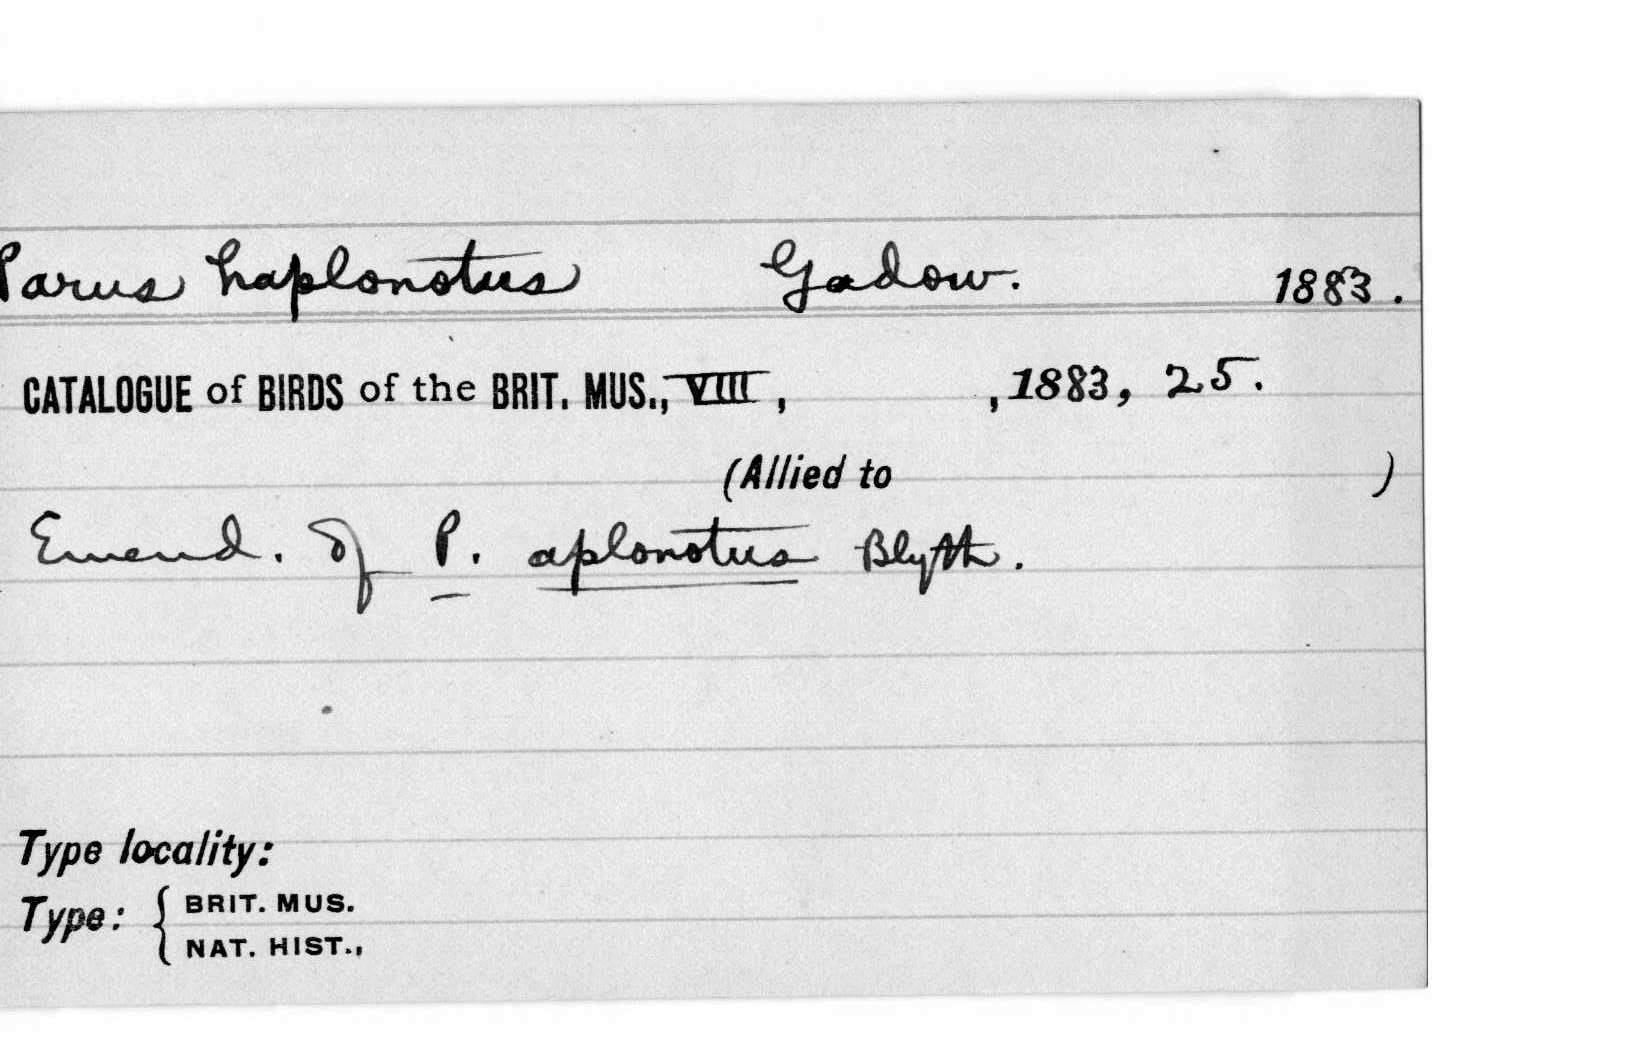 Parus haplonotus Gadow. 1883.
CATALOGUE of BIRDS of the BRIT. MUS., VIII, ,1883, 25.
(Allied to )
Emend. of P. aplonotus Blyth.
Type locality:
Type: { BRIT. MUS.
NAT. HIST.,